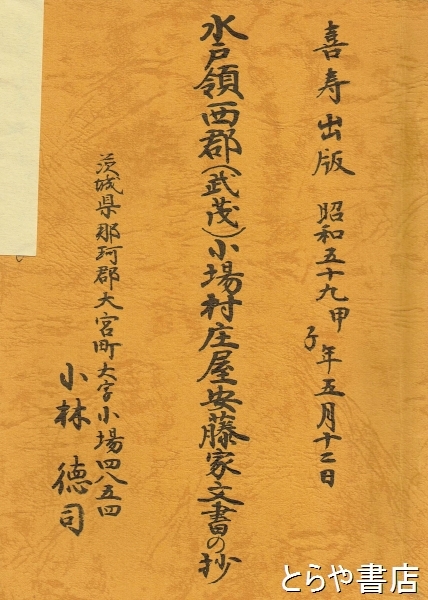 喜寿出版 昭和五十九甲子年五月十二日
水戸領西郡(武茂)小場村庄屋安藤家文書の抄
茨城県那珂郡大宮町大字小場四八五四
小林徳司
とらや書店